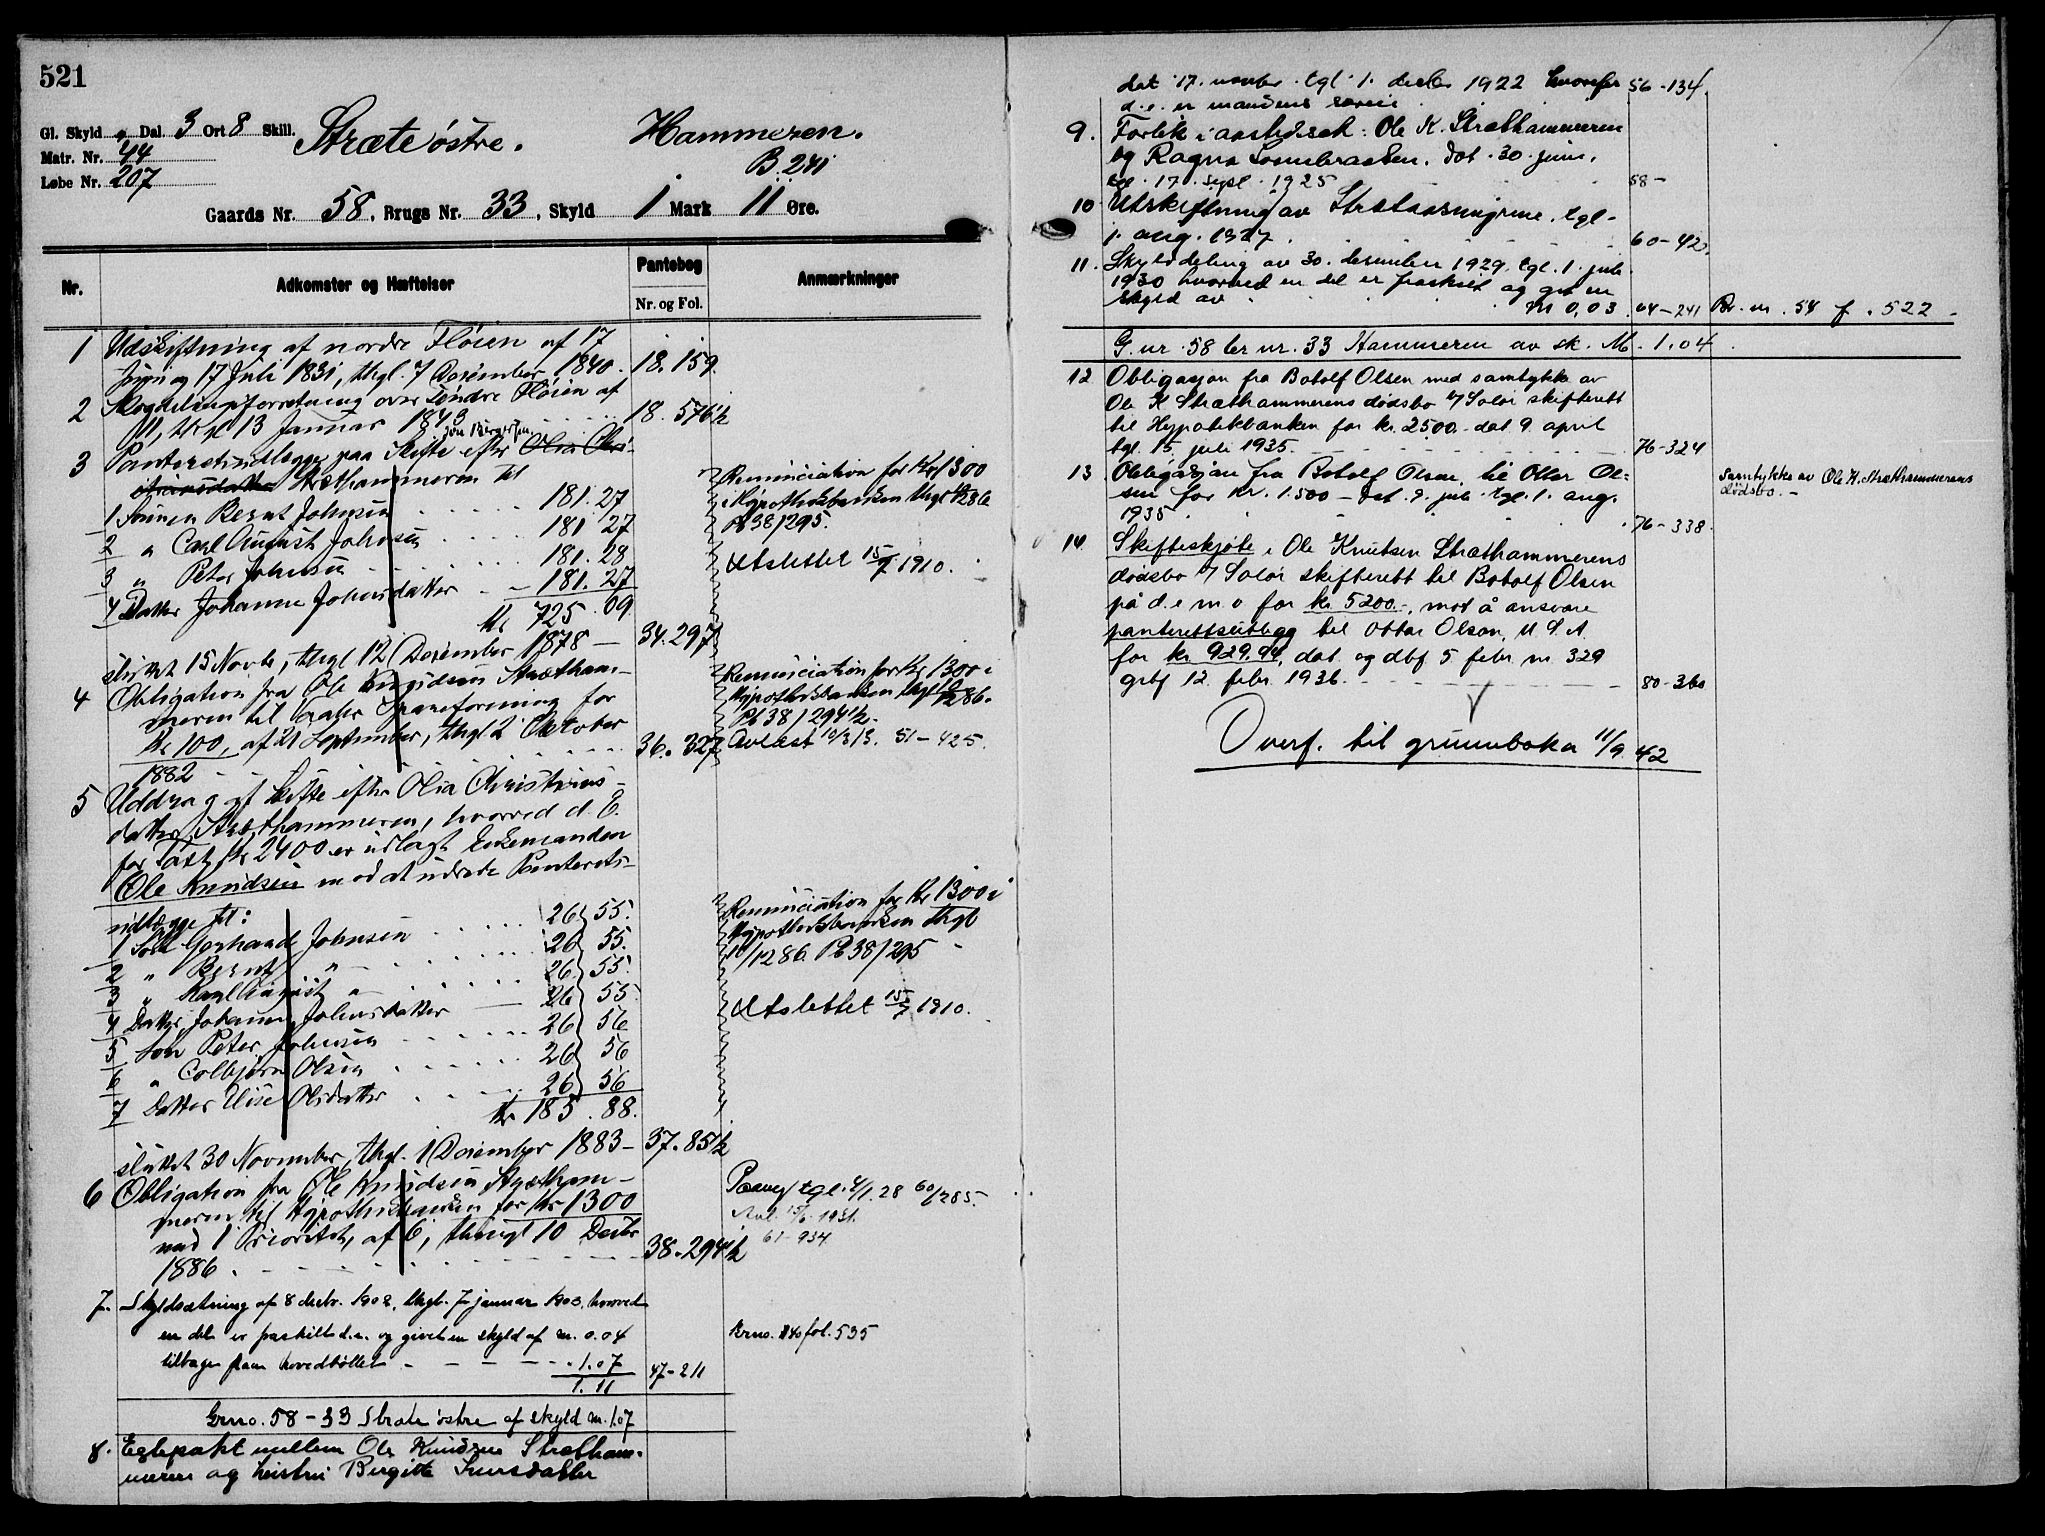 521
Gl. Skyld " Dal. 3 Ort 8 Skill.
Matr. Nr. 44
Løbe Nr. 207
Stræte østre.
Hammeren.
B. 241
Gaards Nr. 58, Brugs Nr. 33, Skyld 1 Mark 11 Øre.
Nr.
Adkomster og Hæftelser
Pantebog
Nr. og Fol.
Anmærkninger
1 Udskiftning af nordre Fløien af 17
Juni og 17 Juli 1831, thgl. 7 December 1840. 18. 159
2 Skogdelingsforretning over søndre Fløien af
11, thgl 13 Januar 1843 18. 576½
3 Panteretsudlægge paa Skifte efter Olia Chri-
Jon Børgersen
stiansdatter Stræthammeren til
1 Sønnen Bernt Johnsen 181. 27
2 " Carl August Johnsen 181 27
3 " Peter Johnsen 181. 28
4 Datter Johanne Johnsdatter - 181. 27
Kr 725. 09
sluttet 15 Novbr, thgl 12 December 1878 - 34. 297
Renunciation for Kr 1300
i Hypothekbanken thgl 10/12 86
Pb 38/295.
Utslettet 15/7 1910.
4 Obligation fra Ole Knudsen Strætham-
meren til Vaaler Spareforening for
Kr 100, af 21 September, thgl 2 Oktober
1882 36. 327
Renunciation for Kr 1300 i
Hypothekbanken thgl 10/12 86.
Pb 38/294½.
Avlæst 10/3 13. 51-425.
5 Uddrag af Skifte efter Olia Christians-
datter Stræthammeren, hvorved d. E.
for Taxt Kr 2400 er udlagt Enkemanden
Ole Knudsen mod at udrede Panterets-
udlægge til:
1 Søn Gerhard Johnsen 26 55.
2 " Bernt " 26 55.
3 " Karl August " 26 55.
4 Datter Johanne Johnsdatter 26 55
5 Søn Peter Johnsen 26 56
6 " Colbjørn Olsen 26 56
7 Datter Elise Olsdatter 26 56
Kr 185. 88.
sluttet 30 November, thgl. 1 December 1883 - 37. 85½
Renunciation for Kr 1300 i
Hypothekbanken thgl
10/12 86 Pb 38/295
Utslettet 15/7 1910.
6 Obligation fra Ole Knudsen Strætham-
meren til Hypothekbanken for Kr 1300
med 1 Prioritet, af 6, thingl 10 Decbr
1886 38. 294½
tgl. 4/1. 28 60/285.
Avl. 15/6 1931.
61-934
7. Skyldsætning af 8 decbr. 1902, thgl. 7 januar 1903, hvorved
en del er fraskilt d.e. og givet en skyld af m. 0.04
tilbage paa hovedbøllet - - - - 1.07
1.11 47-211
Brno. 140 fol. 535
Grno. 58-33 Stræte østre af skyld m. 1.07
8. Egtepakt mellem Ole Knudsen Stretham-
meren og hustru Birgitte Iversdatter
dat 17. novbr. tgl. 1. decbr 1922 hvorefter 56-134
d.e. er mandens særeie
9. Forlik i aastedssak: Ole K. Stræthammeren
og Ragna Sonbraaten. dat. 30. juni,
tgl. 17. sept. 1925 58-
10 Utskiftning av Strætaasungene. tgl-
1. aug. 1927 60-42
11. Skylddeling av 30. desember 1929. tgl. 1. juli
1930 hvorved en del er fraskilt og git en
skyld av M 0,03 64-241 Br. nr. 54 f. 522
G. nr. 58 br nr. 33 Hammeren av sk. M. 1.04
12 Obligasjon fra Botolf Olsen med samtykke av
Ole K Stræthammerens dødsbo v/ Solør skifterett
til Hypotekbanken for kr. 2500.- dat 9. april
tgl. 15 juli 1935. 76-324
13. Obligasjon fra Botolf Olsen til Ottar Ol-
sen for kr. 1.500 - dat. 9. juli tgl. 1. aug.
1935 76-338.
Samtykke av Ole K. Stræthammerens
dødsbo. -
14. Skifteskjøte i Ole Knutsen Stræthammerens
dødsbo v/ Solør skifterett til Botolf Olsen
på d.e m o for kr. 5200.-, mot å ansvare
panterettsutlegg til Ottar Olsen, U.S.A.
for kr. 929.94, dat. og dbf 5 febr. nr. 329
grbf 12. febr. 1936. 80-360
Overf. til grunnboka 11/9. 42